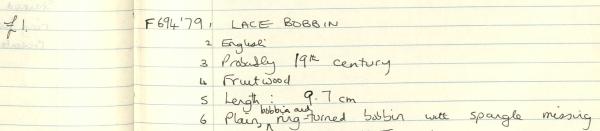 F694'79, LACE BOBBIN
2 English
3 Probably 19th century
4 Fruitwood
5 Length: 9.7 cm
6 Plain, bobbin and ring-turned bobbin with spangle missing